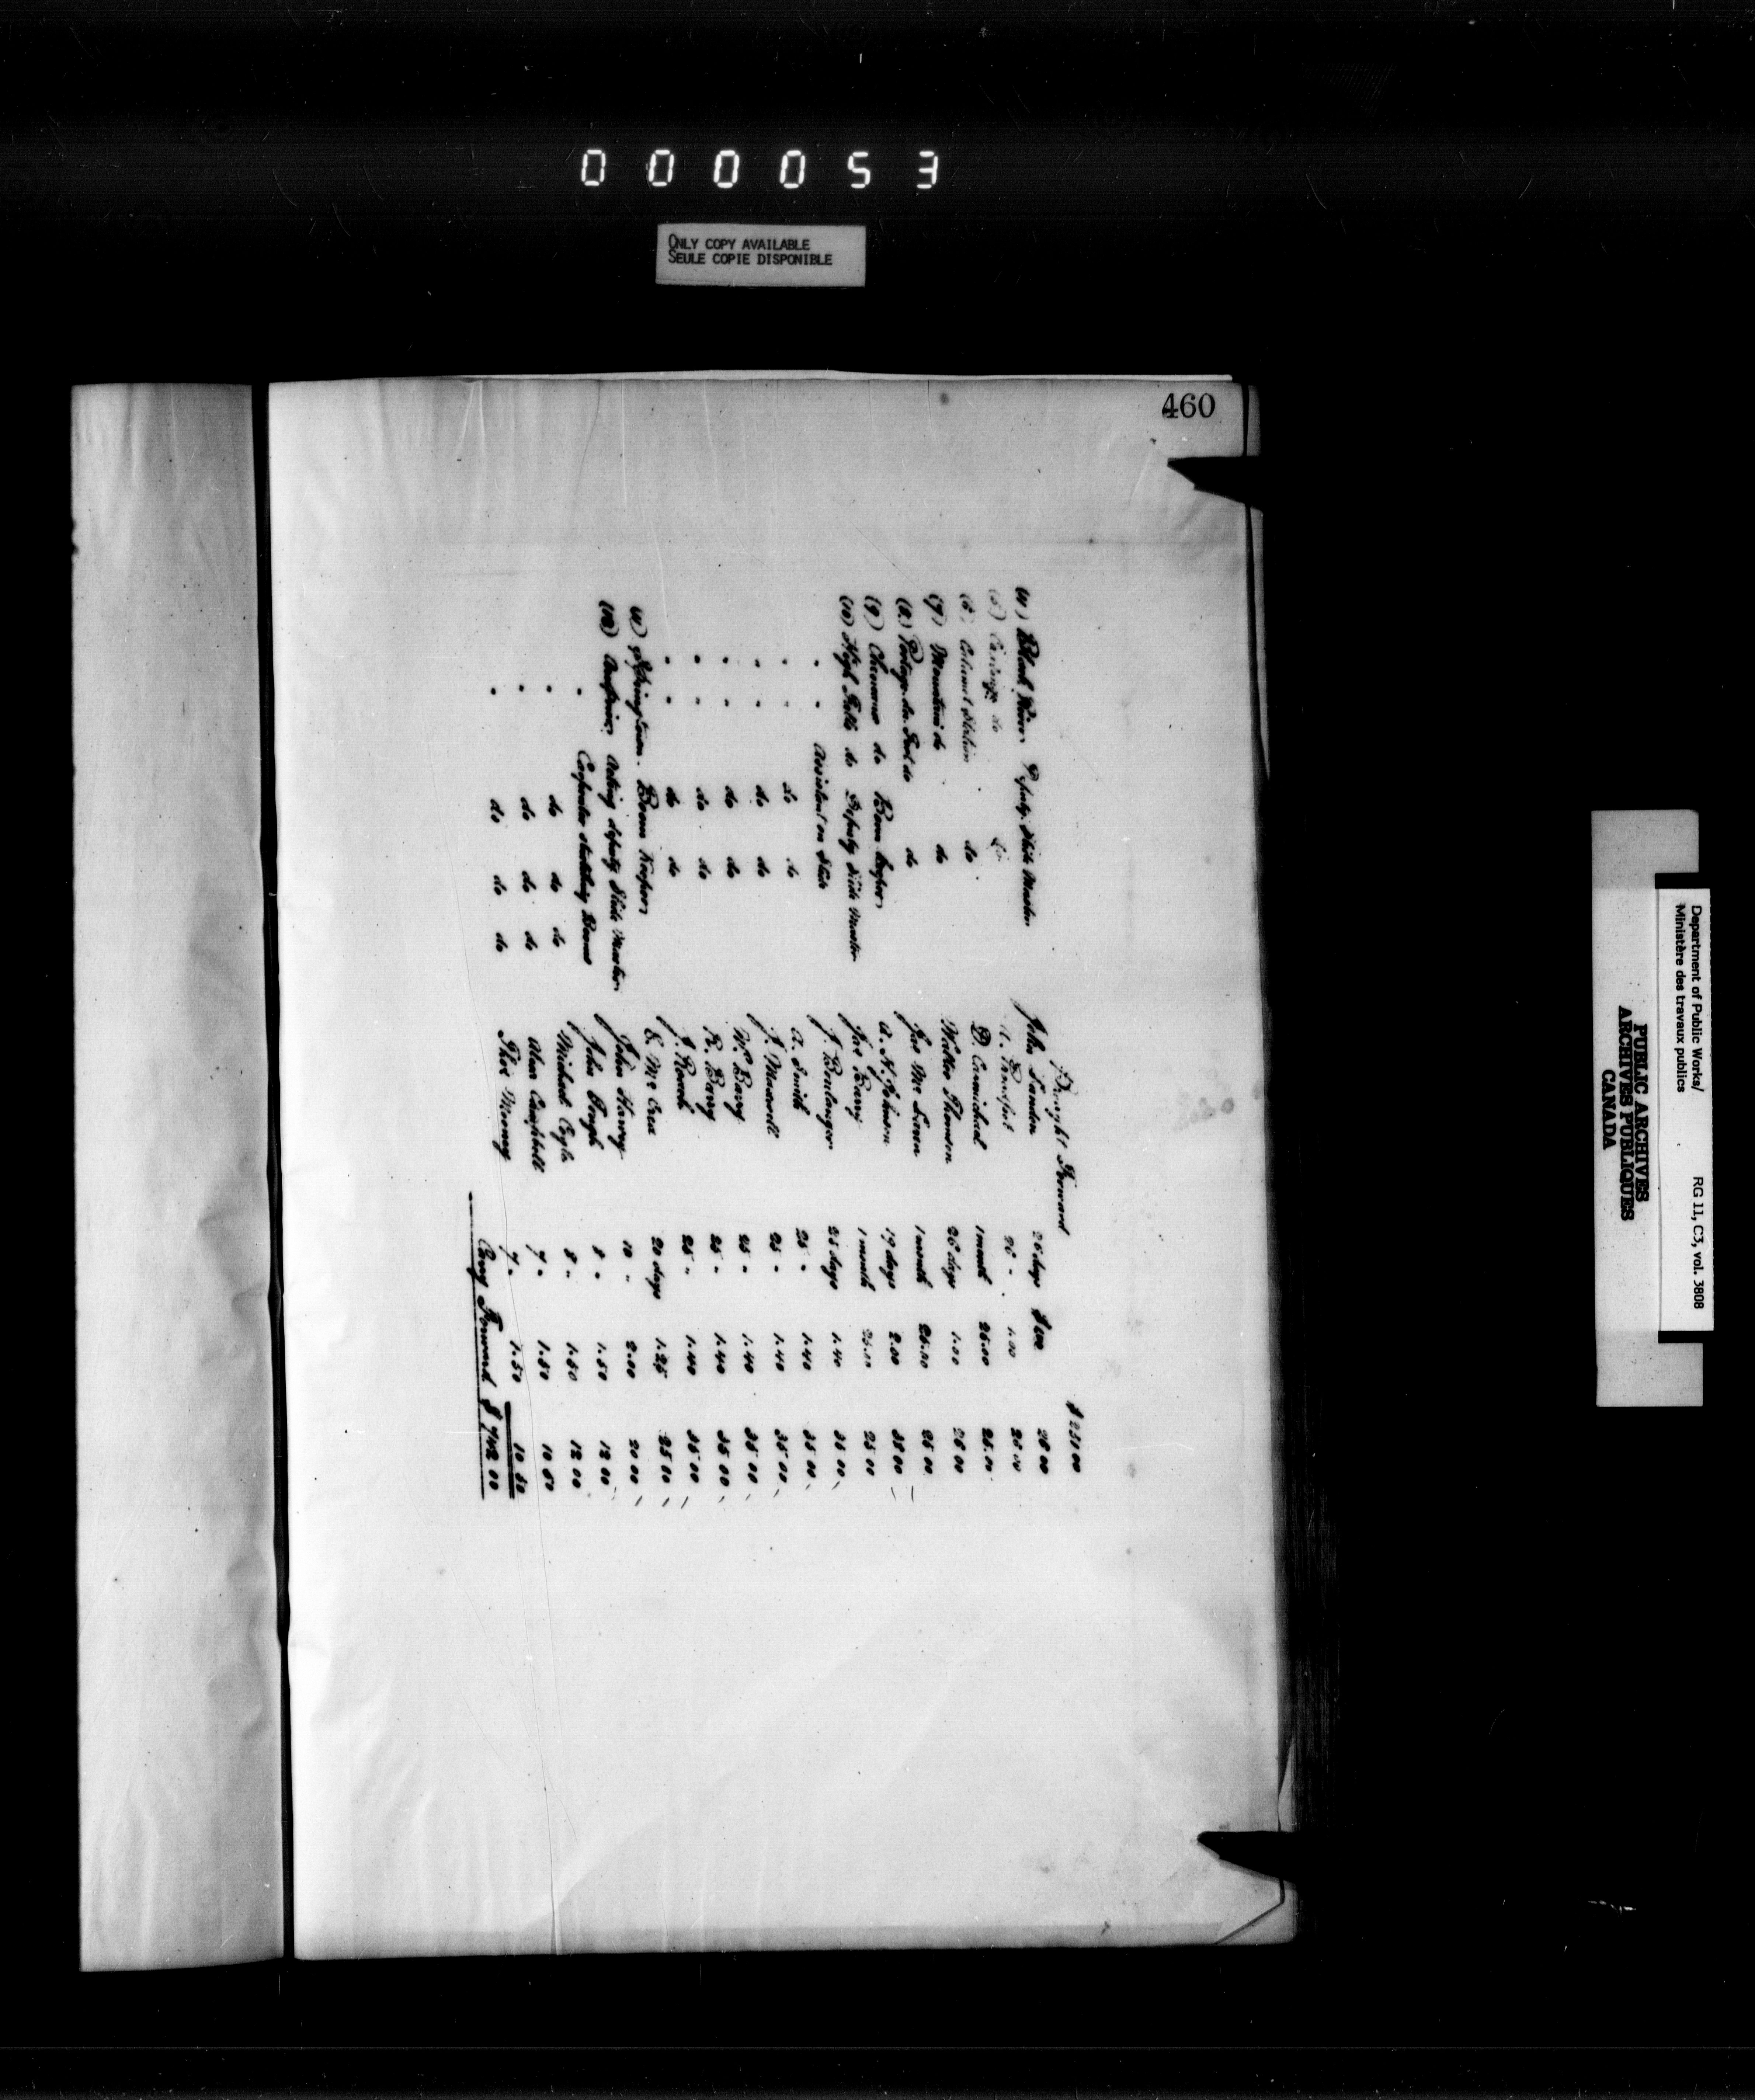 000053
ONLY COPY AVAILABLE
SEULE COPIE DISPONIBLE
460
Brought Forward $ 251 00
(4) Black River Deputy Slide Master John Landon 26 days $1.00 26 00
(5) do do 26 " 1.00 26 00
(6) Calumet Station do D. Carmichael 1 month 25.00 25.00
(7) Mountain do do Walter Thomson 26 days 1.00 26 00
(8) Portage du Fort do do Jas Mc Lean 1 month 25.00 25 00
(9) Chenaux do Boom keeper A. N. Johnson 19 days 2.00 38 00
(10) High Falls do Deputy Slide Master Jas Barry 1 month 25.00 25 00
" " Assistant on Slide J. Boulanger 25 days 1.40 35 00
" " do do A. Smith 25 " 1.40 35 00
" " do do J. Maxwell 25 " 1.40 35 00
" " do do W. Barry 25 " 1.40 35 00
" " do do R. Barry 25 " 1.40 35 00
" " do do J. 25 " 1.40 35 00
(11) Springtown Boom Keeper E. Mc Crea 20 days 1.25 25 00
(12) Arnprior Acting deputy Slide Master John Harvey 10 " 2.00 20 00
" Carpenter Booms John 8 " 1.50 12 00
" do do do Michael 8 " 1.50 12 00
" do do do Alex Campbell 7 " 1.50 10 50
" do do do Thos 7 " 1.50 10 50
Carry Forward $ 742 00
Department of Public Works/
Ministère des travaux publics
RG 11, C3, vol. 3808
PUBLIC ARCHIVES
ARCHIVES PUBLIQUES
CANADA